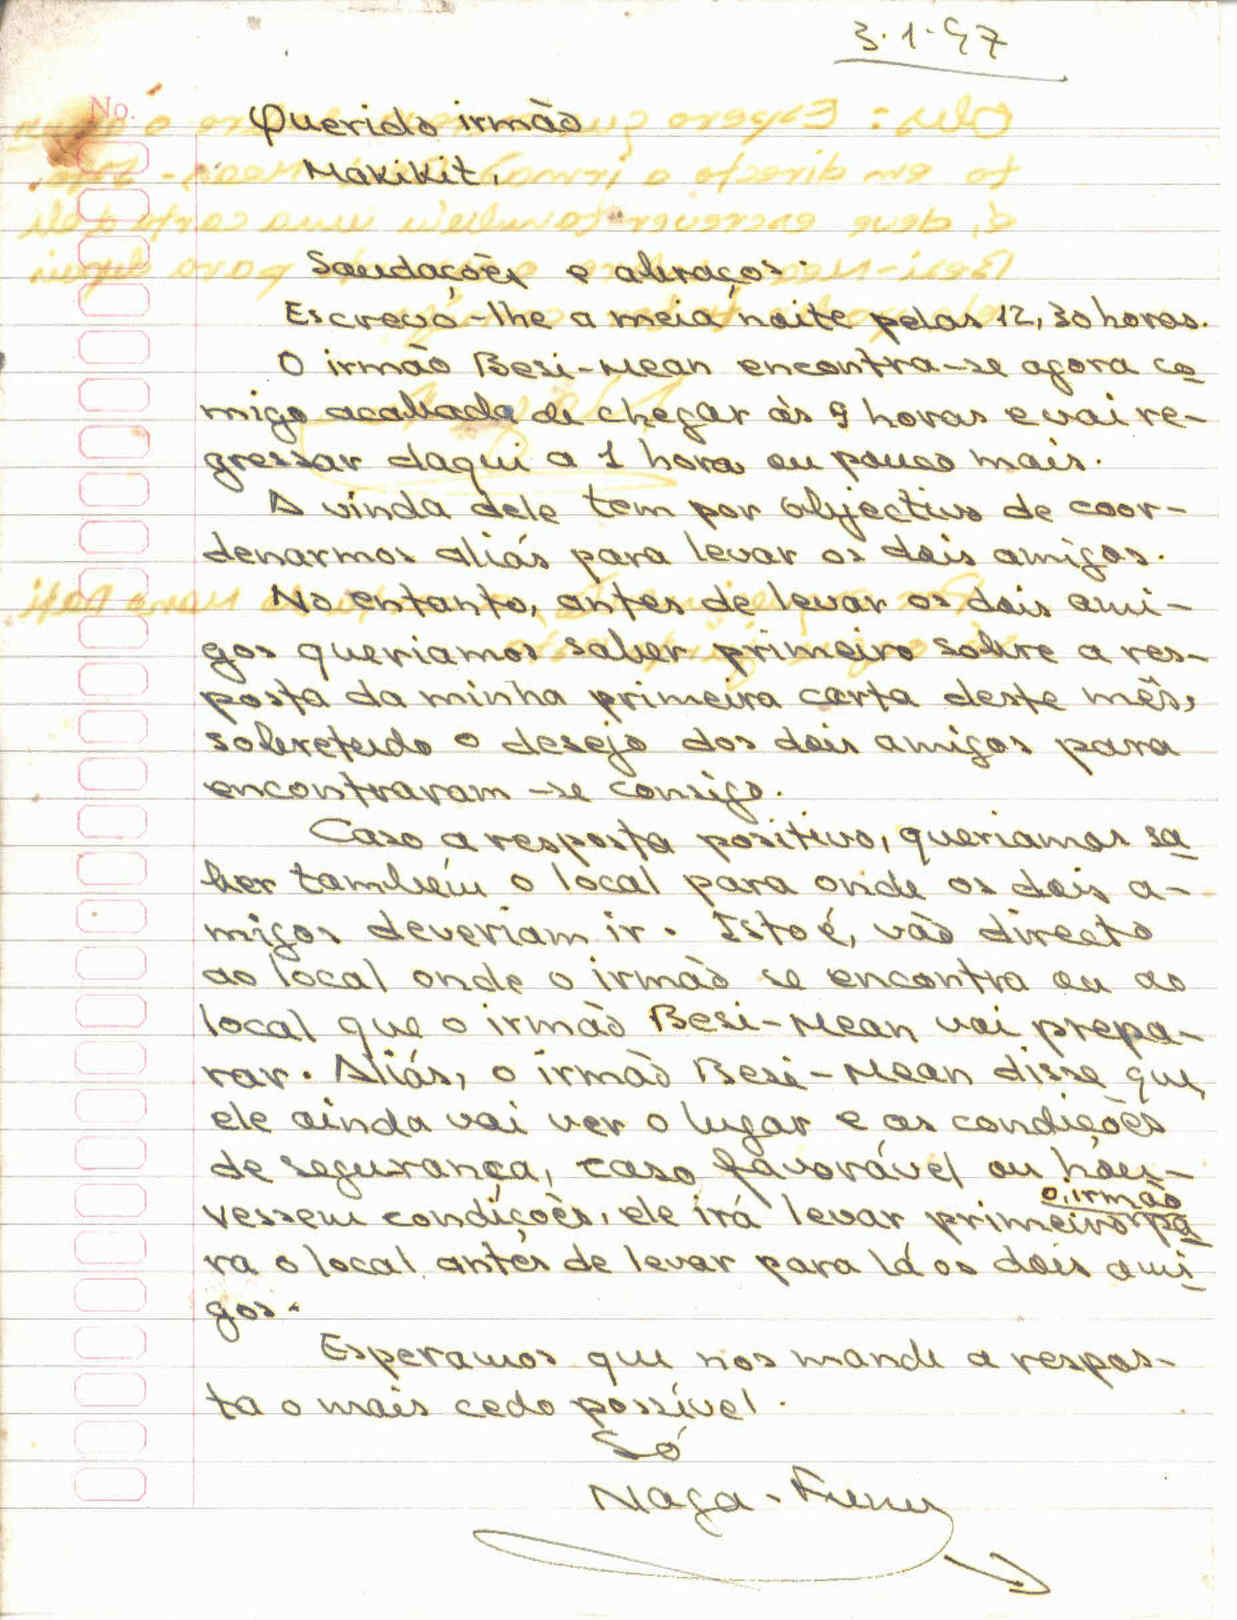 3.1.97
No.
Querido irmão
Makikit,
Saudações e abraços.
Escrevo-lhe a meia noite pelas 12,30 horas.
O irmão Besi-Mean encontra-se agora co
migo acabada de chegar às 9 horas e vai re-
gressar daqui a 1 hora ou pouco mais.
A vinda dele tem por objectivo de coor-
denarmos aliás para levar os dois amigos.
No entanto, antes de levar os dois ami-
gos queriamos saber primeiro sobre a res-
posta da minha primeira carta deste mês,
sobretudo o desejo dos dois amigos para
encontraram-se consigo.
Caso a resposta positivo, queriamos sa
ber também o local para onde os dois a-
migos deveriam ir. Isto é, vão directo
ao local onde o irmão se encontra ou ao
local que o irmão Besi-Mean vai prepa-
rar. Aliás, o irmão Besi-Mean disse que
ele ainda vai ver o lugar e as condições
de segurança, caso favorável ou hou-
o irmão
vessem condições, ele irá levar primeiro pa
ra o local antes de levar para lá os dois ami
gos.
Esperamos que nos mande a respos-
ta o mais cedo possível.
Só
Naga-Funu